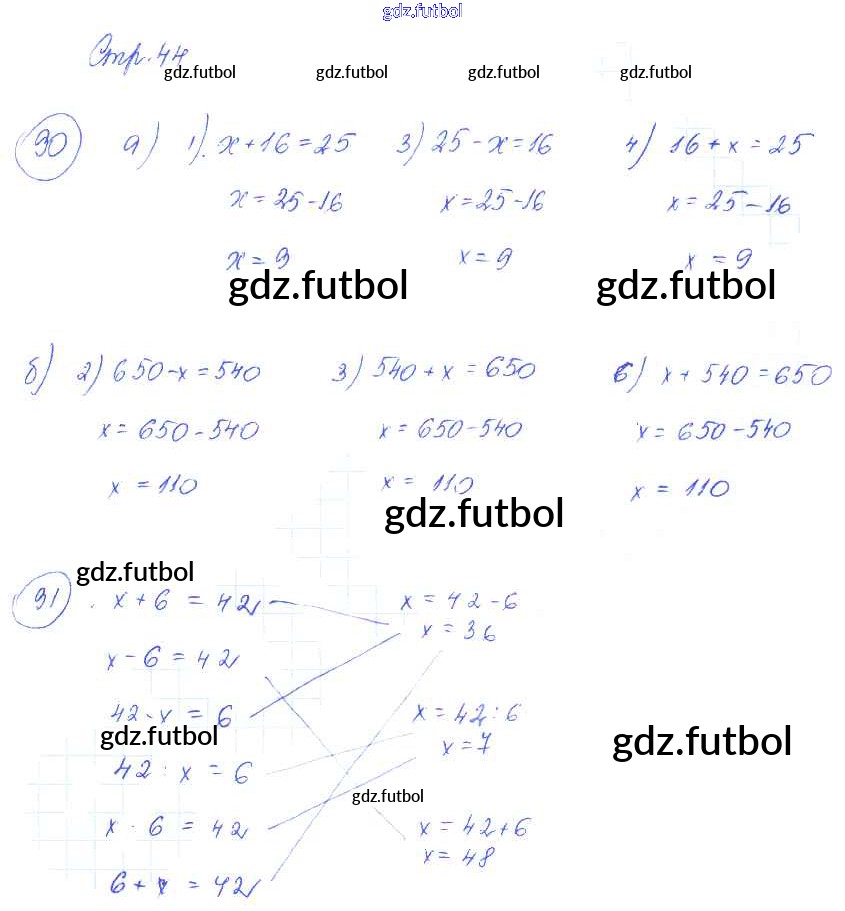 gdz.futbol
Стр. 44
gdz.futbol gdz.futbol gdz.futbol gdz.futbol
90 а) 1). x + 16 = 25 3) 25 - x = 16 4) 16 + x = 25
x = 25 - 16 x = 25 - 16 x = 25 - 16
x = 9 x = 9 x = 9
gdz.futbol gdz.futbol
б) 2) 650 - x = 540 3) 540 + x = 650 6) x + 540 = 650
x = 650 - 540 x = 650 - 540 x = 650 - 540
x = 110 x = 110 x = 110
gdz.futbol
gdz.futbol
91 . x + 6 = 42 x = 42 - 6
x = 36
x - 6 = 42
42 - x = 6 x = 42 : 6
gdz.futbol gdz.futbol
x = 7
42 : x = 6
gdz.futbol
x · 6 = 42 x = 42 + 6
x = 48
6 + x = 42